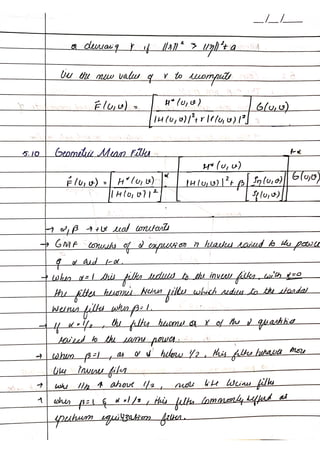 decreasing r if ||r||² > ||η||² + a
Use the new value of r to recompute
F̂(u,v) = [ H*(u,v) / |H(u,v)|² + r |P(u,v)|² ] G(u,v)
5.10 Geometric Mean Filter
F̂(u,v) = [ H*(u,v) / |H(u,v)|² ]^α [ H*(u,v) / |H(u,v)|² + β [ Sη(u,v) / Sf(u,v) ] ]^1-α G(u,v)
→ α, β → +ve real constants
→ GMF consists of 2 expression n brackes raised to the power
α and 1-α.
→ when α=1 this filter reduces to the inverse filter, with α=0
the filter becomes wiener filter which reduces to the standar
weiner filter when β=1.
→ If α=1/2, the filter becomes of the 2 quantities
raised to the same power.
→ when β=1, as α ↓ below 1/2, this filter more
like Inverse filter
→ 1/2 ↑ above 1/2, more like Weiner filter
→ when β=1 & α=1/2, this filter commonly as
spectrum equilization filter.